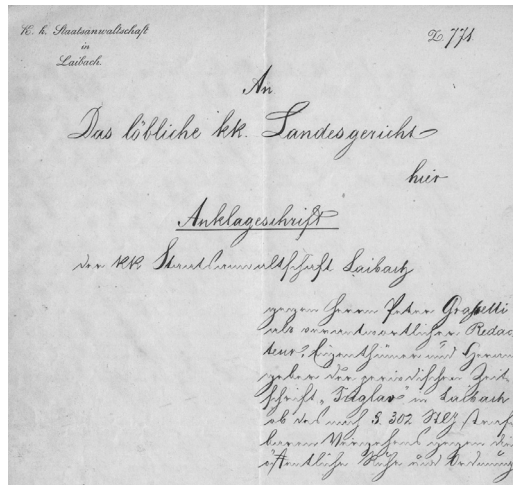 K. k. Staatsanwaltschaft
in
Laibach.
Z 771
An
Das löbliche kk. Landesgericht
hier
Anklageschrift
der kk Staatsanwaltschaft Laibach
gegen Herrn Peter Grasselli
als verantwortlicher Redac
teur, Eigenthümer und Heraus
geber der periodischen Zeit
schrift „Triglav" in Laibach
ob des nach §. 302 StG straf
baren Vergehens gegen die
öffentliche Ruhe und Ordnung